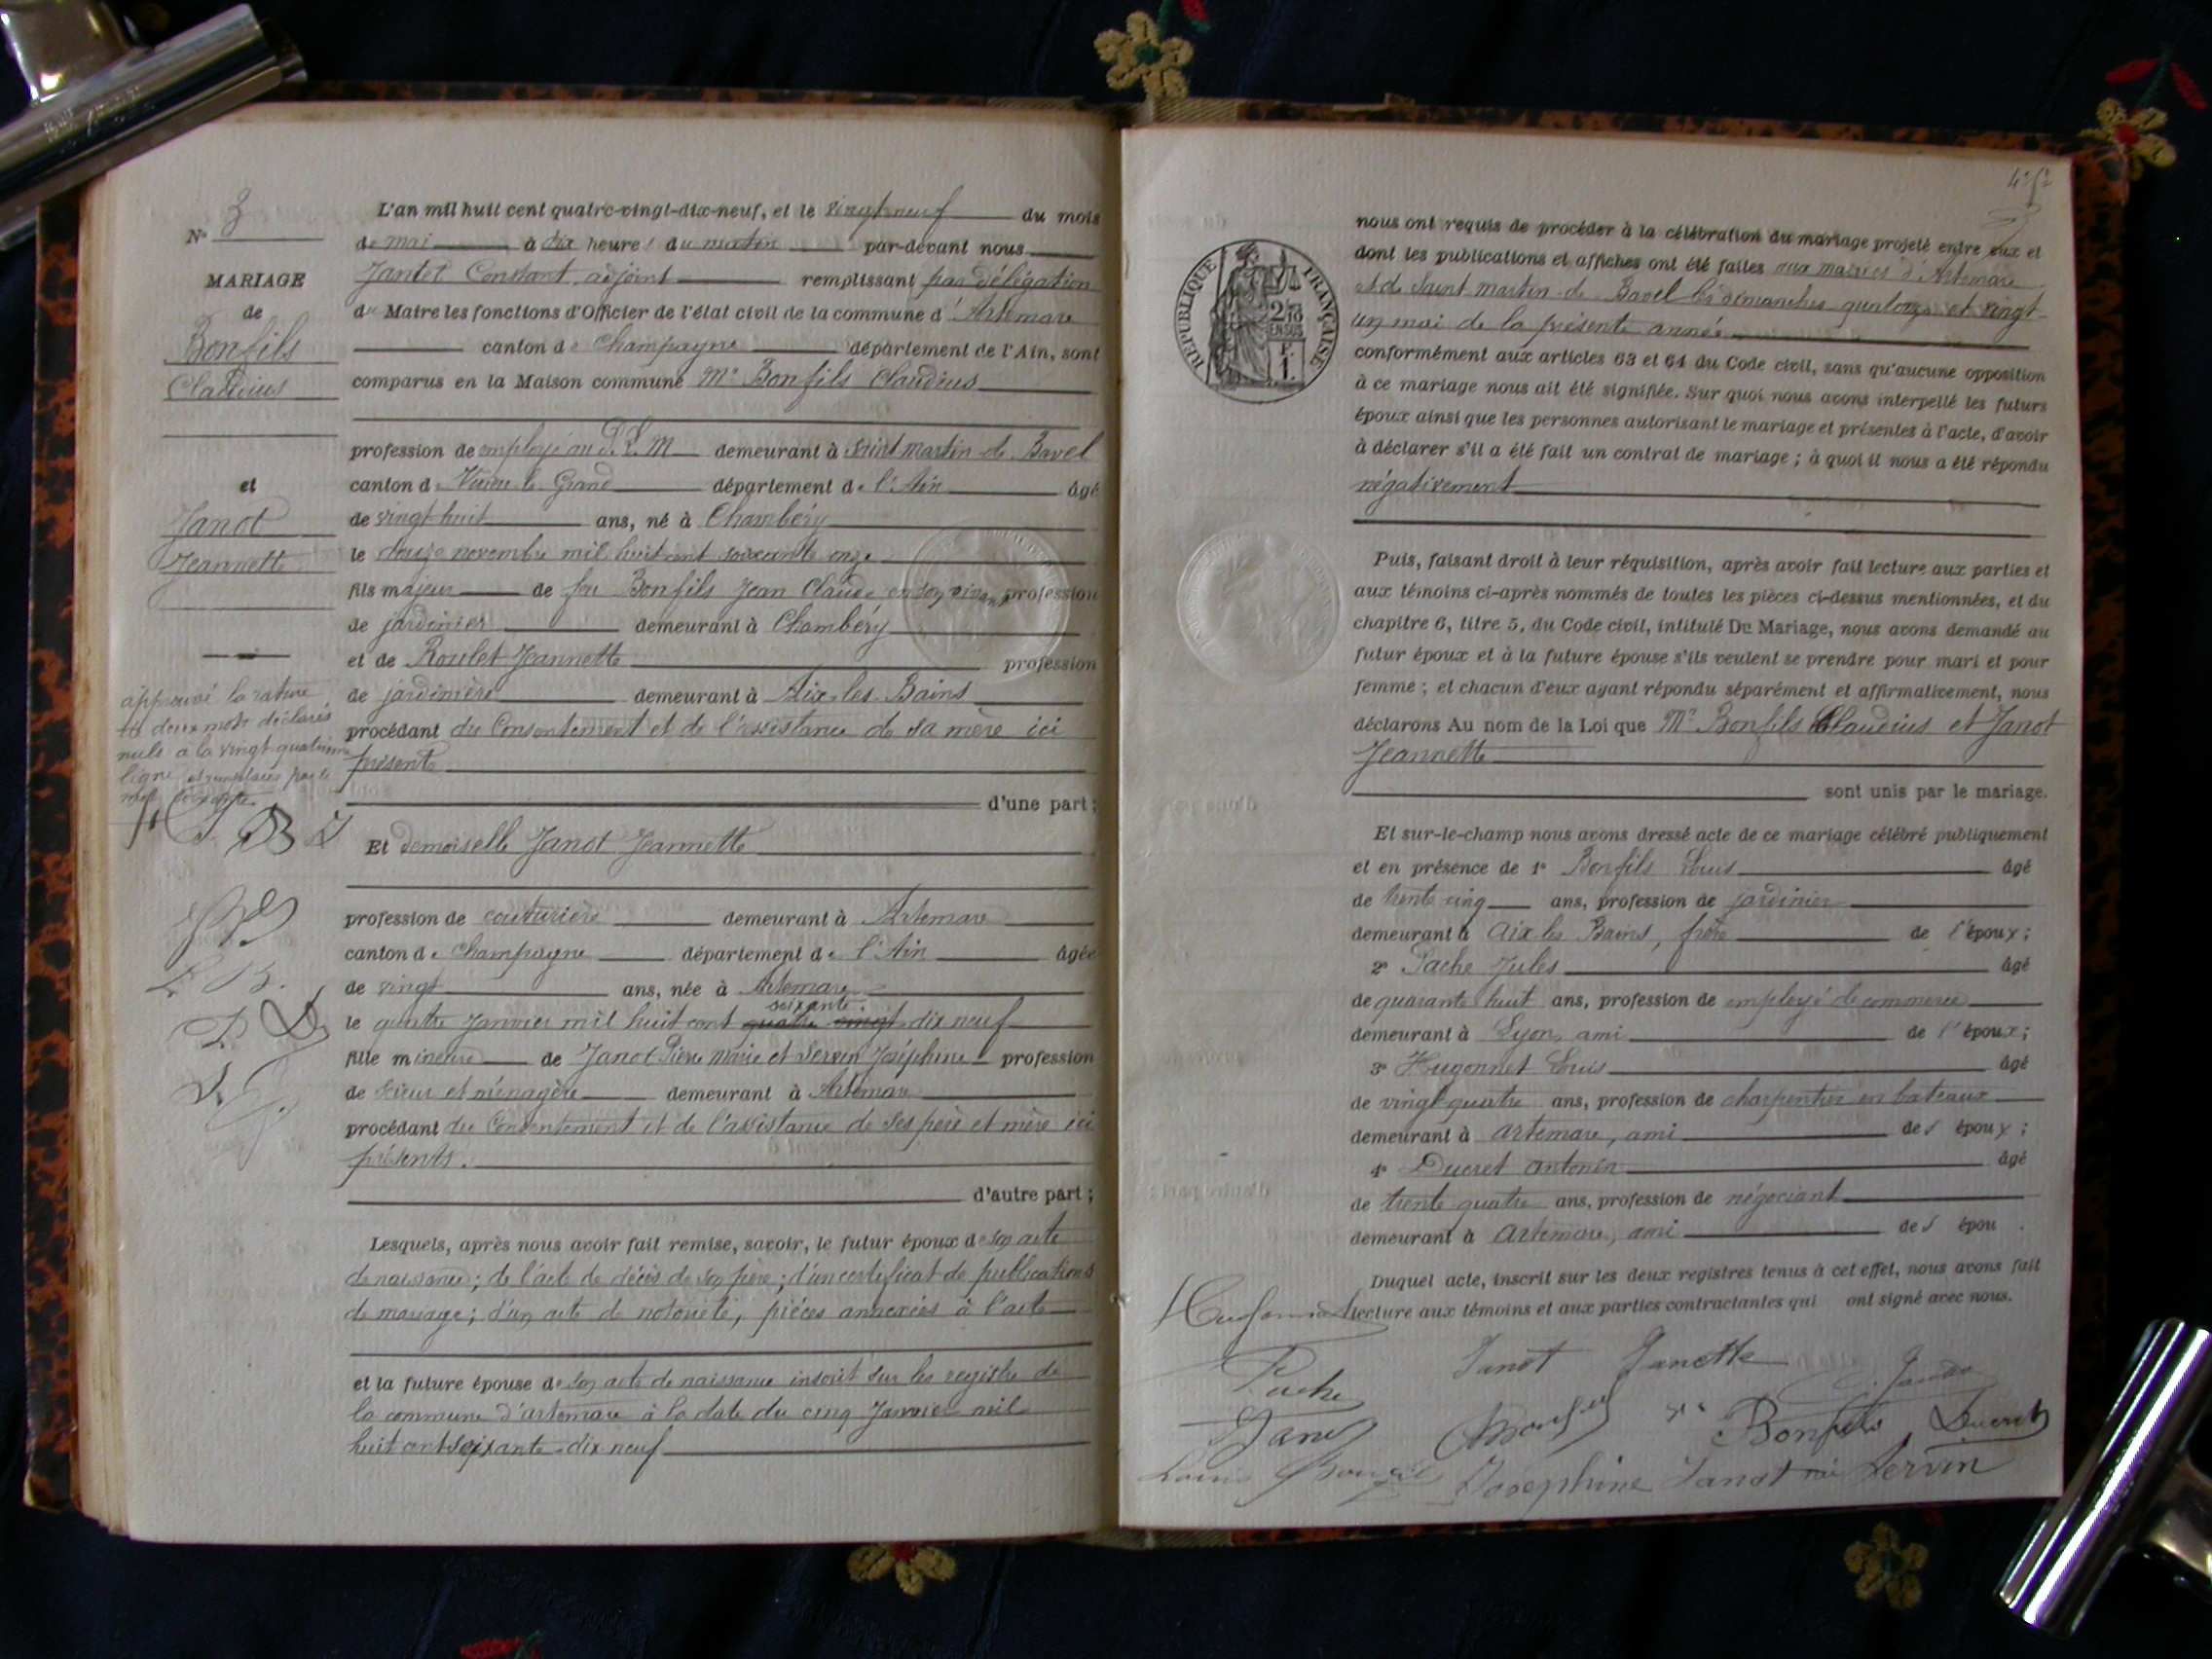 N° 3
MARIAGE
de
Bonfils
Claudius
et
Janot
Jeannette
approuvé la rature
de deux mots déclarés
nuls à la vingt quatrième
ligne et remplacés par le
mot soixante
L'an mil huit cent quatre-vingt-dix-neuf, et le vingt neuf du mois
de mai à dix heures du matin par-devant nous
Jantet Constant adjoint remplissant par délégation
du Maire les fonctions d'Officier de l'état civil de la commune d'Artemare
canton de Champagne département de l'Ain, sont
comparus en la Maison commune Mr Bonfils Claudius
profession de employé au P.L.M demeurant à Saint martin de Bavel
canton de Virieu le Grand département de l'Ain âgé
de vingt huit ans, né à Chambéry
le douze novembre mil huit cent soixante onze
fils majeur de feu Bonfils Jean Claude en son vivant profession
de jardinier demeurant à Chambéry
et de Roulet Jeannette profession
de jardinière demeurant à Aix-les-Bains
procédant du Consentement et de l'assistance de sa mère ici
présente
d'une part;
Et demoiselle Janot Jeannette
profession de couturière demeurant à Artemare
canton de Champagne département de l'Ain âgée
de vingt ans, née à Artemare
soixante
le quatre Janvier mil huit cent quatre vingt dix neuf
fille mineure de Janot Pierre Marie et Servin Joséphine profession
de scieur et ménagère demeurant à Artemare
procédant du Consentement et de l'assistance de ses père et mère ici
présents.
d'autre part;
Lesquels, après nous avoir fait remise, savoir, le futur époux de son acte
de naissance; de l'acte de décès de son père; d'un certificat de publications
de mariage; d'un acte de notoriété, pièces annexées à l'acte
et la future épouse de son acte de naissance inscrit sur les registre de
la commune d'artemare à la date du cinq Janvier mil
huit cent soixante-dix-neuf
RÉPUBLIQUE FRANÇAISE
2/10 EN SUS
1 F.
nous ont requis de procéder à la célébration du mariage projeté entre eux et
dont les publications et affiches ont été faites aux mairies d'Artemare
et de Saint martin de Bavel les dimanches quatorze et vingt
un mai de la présente année
conformément aux articles 63 et 64 du Code civil, sans qu'aucune opposition
à ce mariage nous ait été signifiée. Sur quoi nous avons interpellé les futurs
époux ainsi que les personnes autorisant le mariage et présentes à l'acte, d'avoir
à déclarer s'il a été fait un contrat de mariage; à quoi il nous a été répondu
négativement
Puis, faisant droit à leur réquisition, après avoir fait lecture aux parties et
aux témoins ci-après nommés de toutes les pièces ci-dessus mentionnées, et du
chapitre 6, titre 5, du Code civil, intitulé Du Mariage, nous avons demandé au
futur époux et à la future épouse s'ils veulent se prendre pour mari et pour
femme; et chacun d'eux ayant répondu séparément et affirmativement, nous
déclarons Au nom de la Loi que Mr Bonfils Claudius et Janot
Jeannette
sont unis par le mariage.
Et sur-le-champ nous avons dressé acte de ce mariage célébré publiquement
et en présence de 1° Bonfils Louis âgé
de trente cinq ans, profession de jardinier
demeurant à Aix les Bains, frère de l'époux;
2° Pache Jules âgé
de quarante huit ans, profession de employé de commerce
demeurant à Lyon, ami de l'époux;
3° Hugonnet Louis âgé
de vingt-quatre ans, profession de charpentier en bateaux
demeurant à artemare, ami des époux;
4° Ducret antonin âgé
de trente quatre ans, profession de négociant
demeurant à Artemare, ami des épou .
Duquel acte, inscrit sur les deux registres tenus à cet effet, nous avons fait
lecture aux témoins et aux parties contractantes qui ont signé avec nous.
Hugonnet
Janot Janette
Pache
Bonfils Ducret
Joséphine Janot née Servin